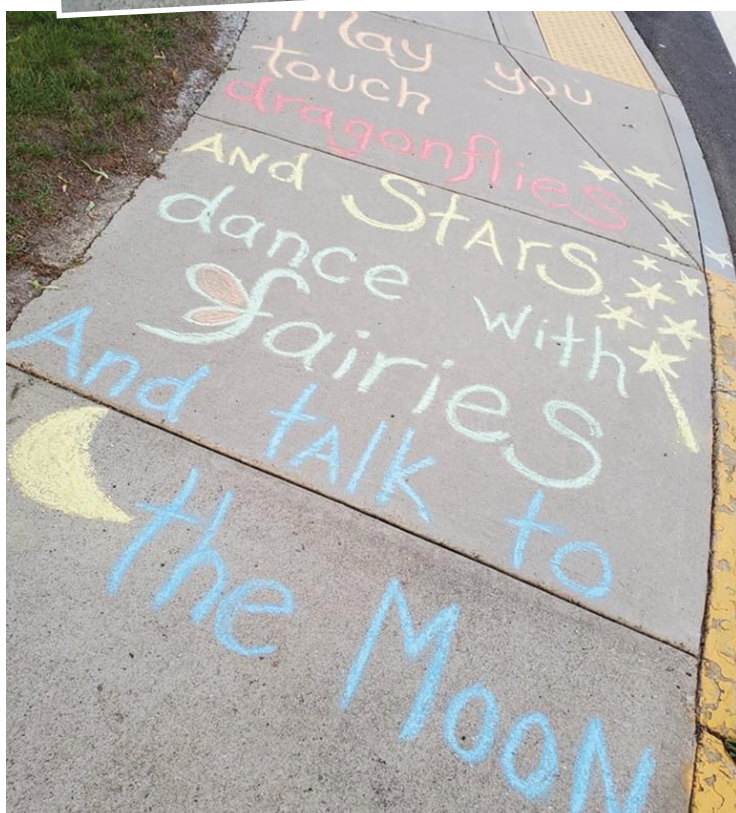 May you
touch
dragonflies
And Stars,
dance with
fairies
And talk to
the Moon